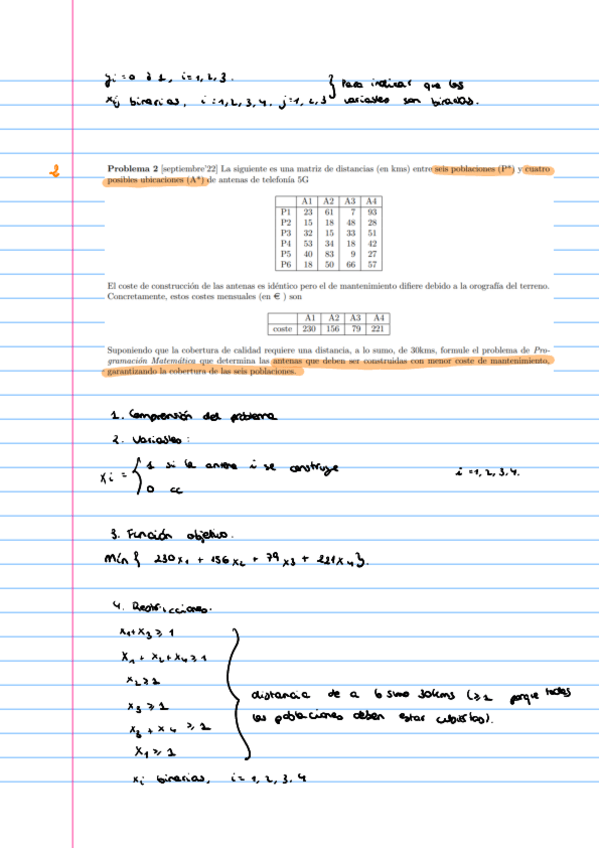 yi = 0 ó 1, i = 1, 2, 3.
xij binarias, i = 1, 2, 3, 4. j = 1, 2, 3
} Para indicar que las
variables son binarias.
2
Problema 2 [septiembre'22] La siguiente es una matriz de distancias (en kms) entre seis poblaciones (P*) y cuatro
posibles ubicaciones (A*) de antenas de telefonía 5G
A1 A2 A3 A4
P1 23 61 7 93
P2 15 18 48 28
P3 32 15 33 51
P4 53 34 18 42
P5 40 83 9 27
P6 18 50 66 57
El coste de construcción de las antenas es idéntico pero el de mantenimiento difiere debido a la orografía del terreno.
Concretamente, estos costes mensuales (en € ) son
A1 A2 A3 A4
coste 230 156 79 221
Suponiendo que la cobertura de calidad requiere una distancia, a lo sumo, de 30kms, formule el problema de Pro-
gramación Matemática que determina las antenas que deben ser construidas con menor coste de mantenimiento,
garantizando la cobertura de las seis poblaciones.
1. Comprensión del problema
2. Variables:
xi = { 1 si la antena i se construye
0 cc
i = 1, 2, 3, 4.
3. Función objetivo.
Mín { 230x1 + 156x2 + 79x3 + 221x4 }.
4. Restricciones.
x1 + x3 ≥ 1
x1 + x2 + x4 ≥ 1
x2 ≥ 1
x3 ≥ 1
x3 + x4 ≥ 1
x1 ≥ 1
distancia de a lo sumo 30kms (≥1 porque todas
las poblaciones deben estar cubiertas).
xi binarias, i = 1, 2, 3, 4